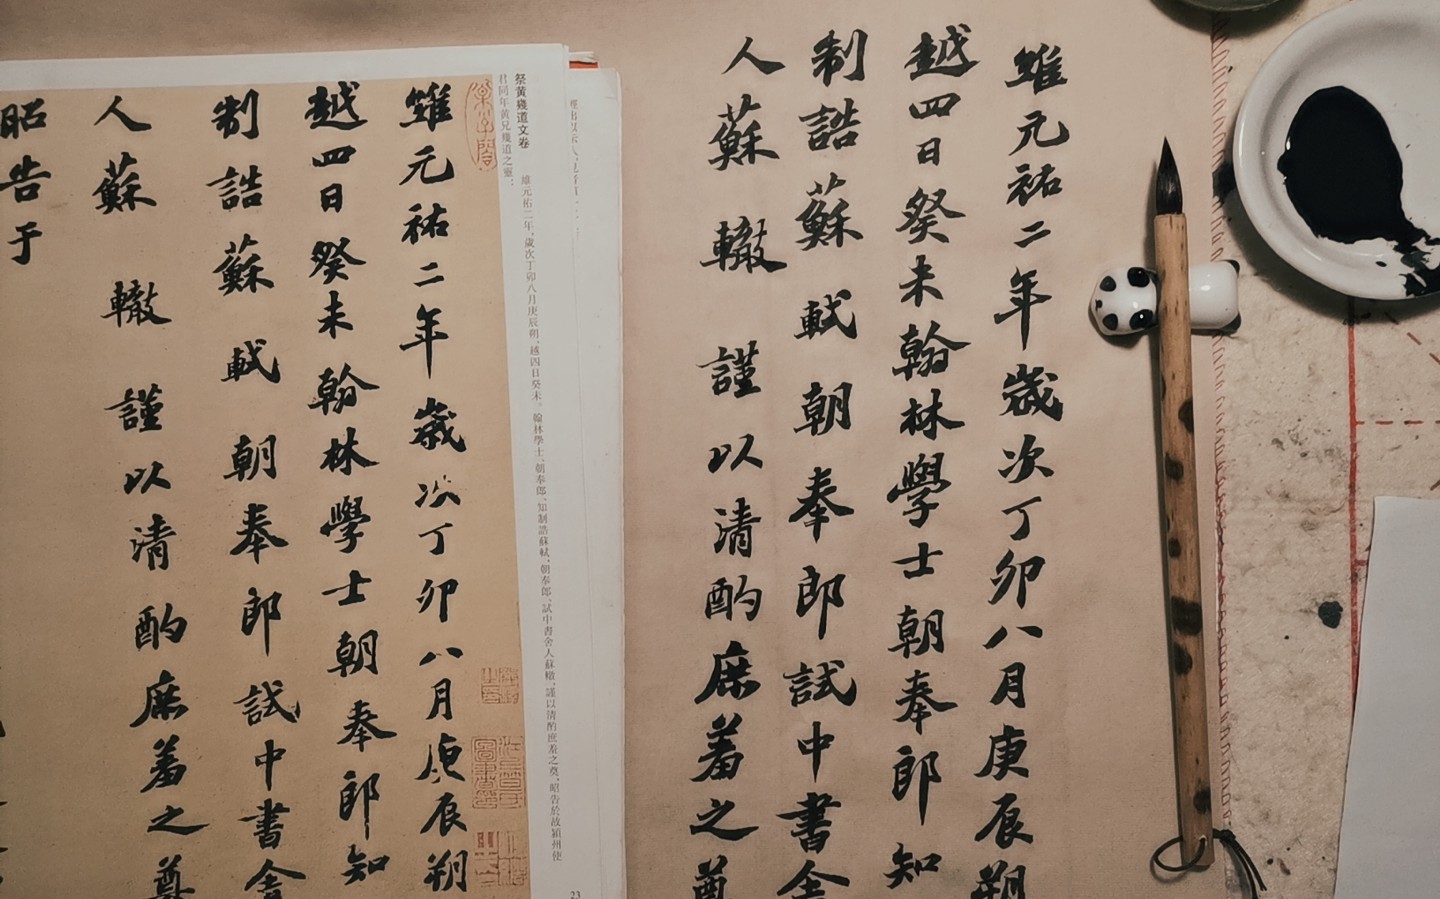 維元祐二年歲次丁卯八月庚辰朔
越四日癸未翰林學士朝奉郎知
制誥蘇軾朝奉郎試中書舍
人蘇轍謹以清酌庶羞之奠
祭黃幾道文卷
維元佑二年，歲次丁卯八月庚辰朔，越四日癸未。翰林學士、朝奉郎、知制誥蘇軾，朝奉郎、試中書舍人蘇轍，謹以清酌庶羞之奠，昭告於故穎州使
君同年黃兄幾道之靈：
23
維元祐二年歲次丁卯八月庚辰朔
越四日癸未翰林學士朝奉郎知
制誥蘇軾朝奉郎試中書舍
人蘇轍謹以清酌庶羞之奠
昭告于